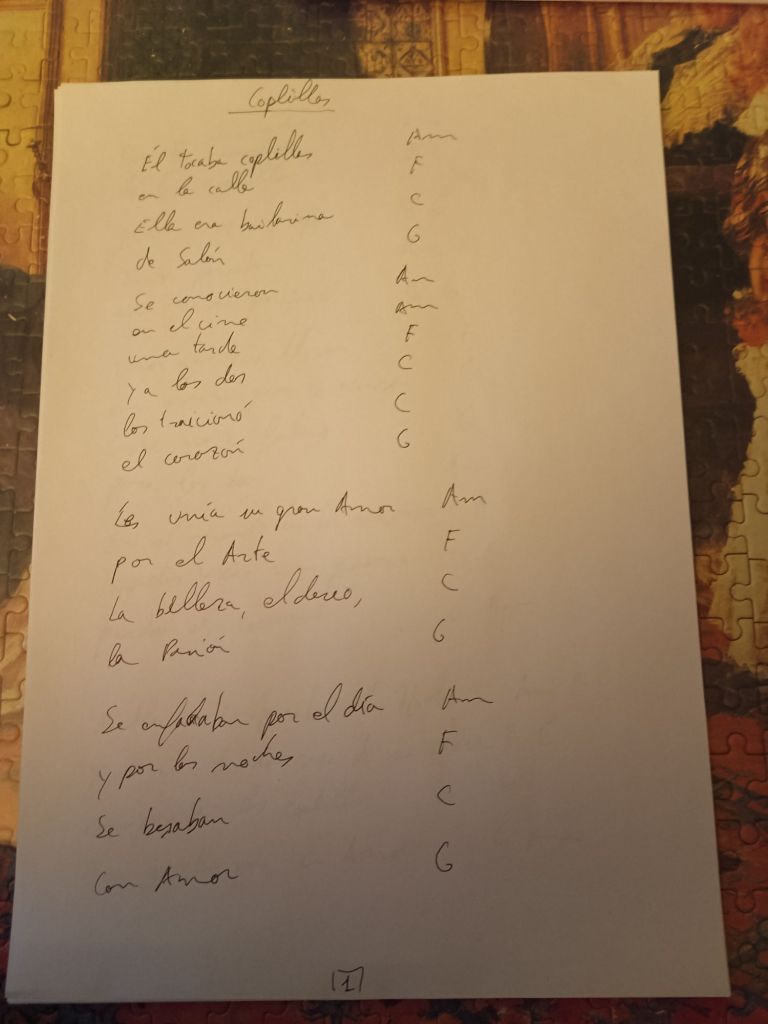 Coplillas
Él tocaba coplillas Am
en la calle F
Ella era bailarina C
de Salón G
Se conocieron Am
en el cine Am
una tarde F
Y a los dos C
los traicionó C
el corazón G
Les unía un gran Amor Am
por el Arte F
La belleza, el deseo, C
la Pasión G
Se enfadaban por el día Am
y por las noches F
Se besaban C
Con Amor G
1